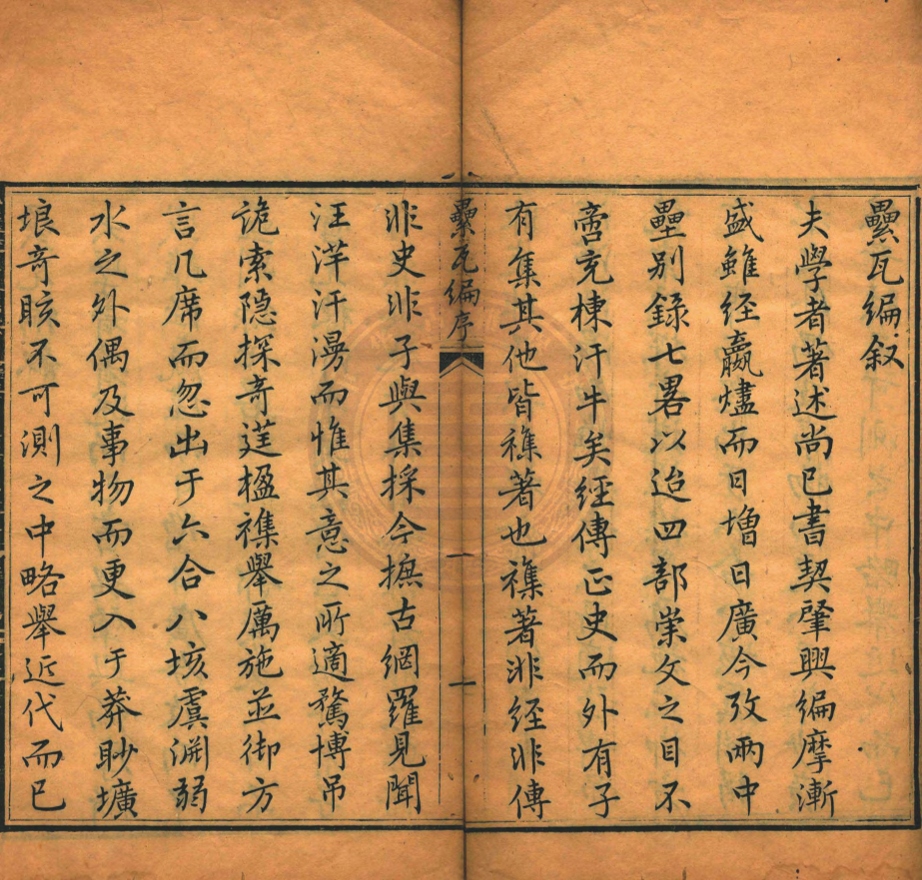 纍瓦編叙
夫學者著述尚已書契肇興編摩漸
盛雖经嬴燼而日增日廣今攷兩中
壘别錄七畧以迨四部崇文之目不
啻充棟汗牛矣经傳正史而外有子
有集其他皆襍著也襍著非经非傳
纍瓦編序
一
非史非子與集採今摭古網羅見聞
汪洋汗漫而惟其意之所適騖博吊
詭索隐探奇莛楹襍舉厲施並御方
言几席而忽出于六合八垓虞淵弱
水之外偶及事物而更入于莽眇壙
埌奇賅不可測之中略舉近代而已